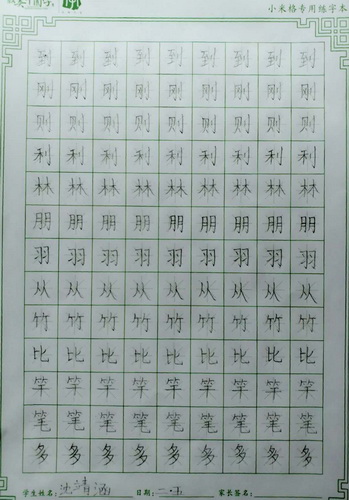 小米格专用练字本
到 到 到 到 到 到 到 到 到
刚 刚 刚 刚 刚 刚 刚 刚 刚
则 则 则 则 则 则 则 则 则
利 利 利 利 利 利 利 利 利
林 林 林 林 林 林 林 林 林
朋 朋 朋 朋 朋 朋 朋 朋 朋
羽 羽 羽 羽 羽 羽 羽 羽 羽
从 从 从 从 从 从 从 从 从
竹 竹 竹 竹 竹 竹 竹 竹 竹
比 比 比 比 比 比 比 比 比
竿 竿 竿 竿 竿 竿 竿 竿 竿
笔 笔 笔 笔 笔 笔 笔 笔 笔
多 多 多 多 多 多 多 多 多
学生姓名: 沈靖涵 日期: 家长签名: